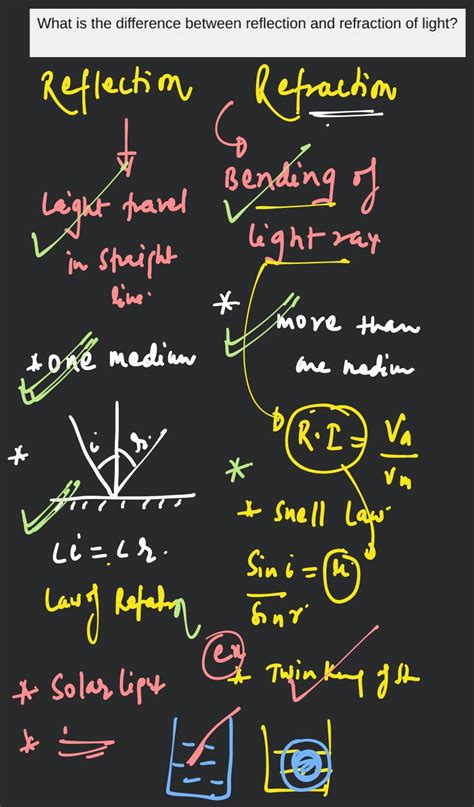 What is the difference between reflection and refraction of light?
Reflection
Light travel
in straight
line.
* one medium
i r
*
∠i = ∠r.
Law of
* Solar light
*
Refraction
Bending of
light ray
*
more than
one medium
R.I = Va
Vm
*
* Snell Law
Sin i = n
Sin r
ex
* Twinking of